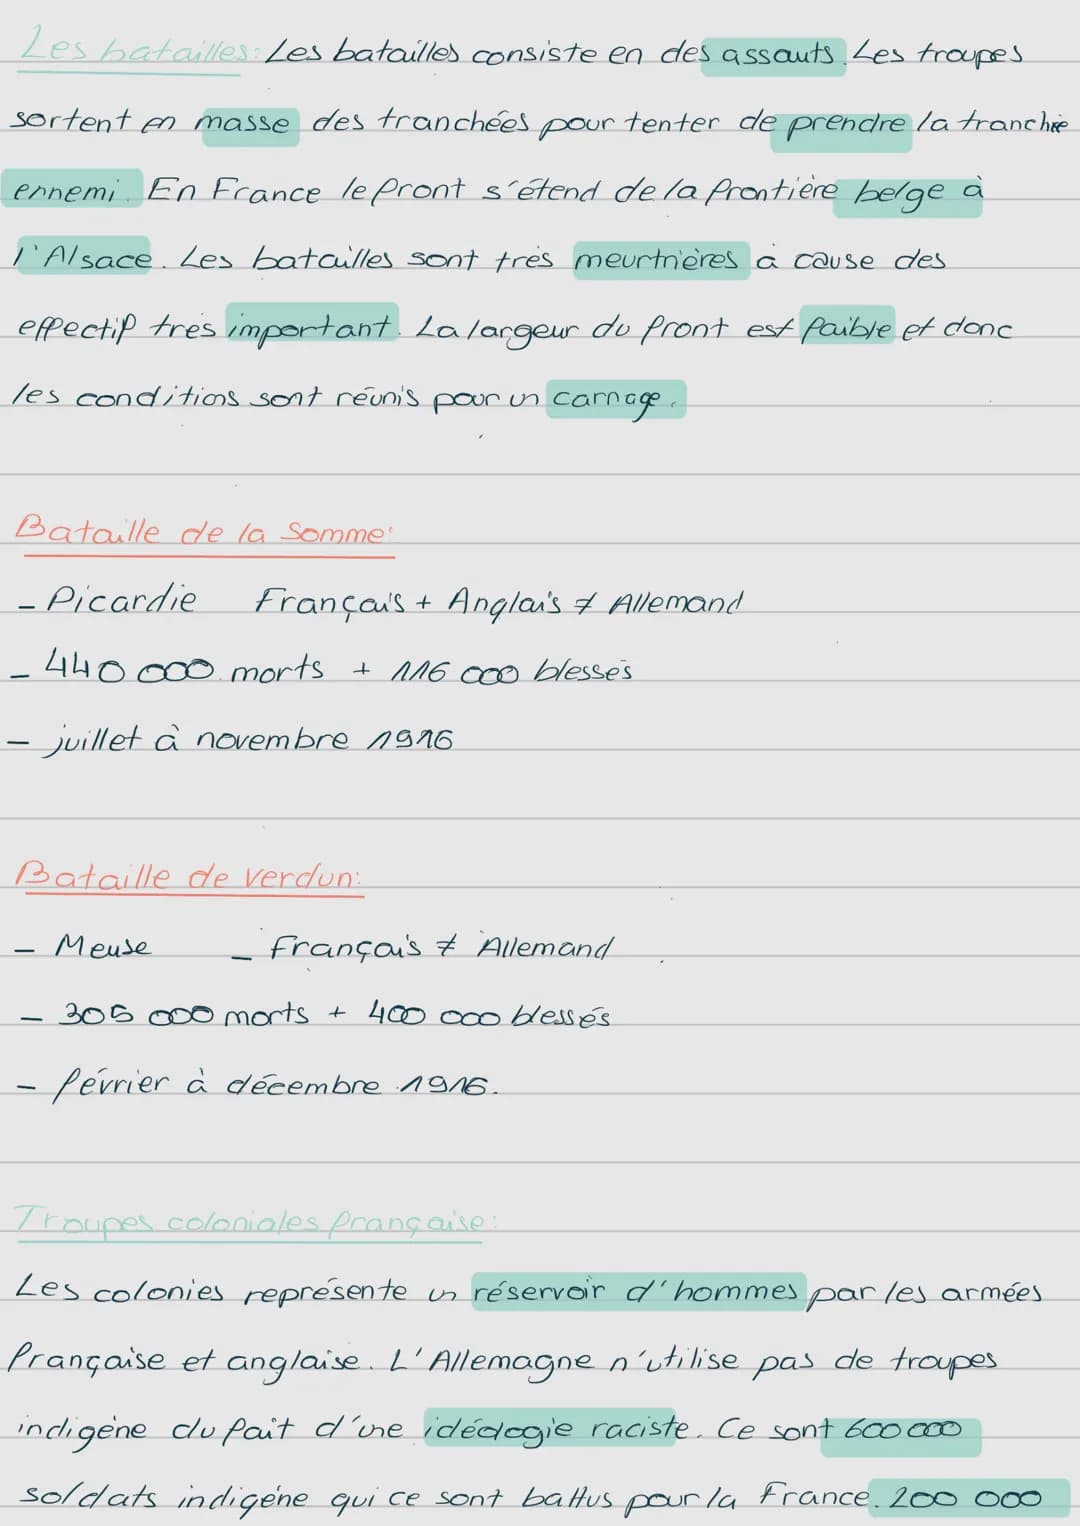 Les batailles: Les batailles consiste en des assauts. Les troupes
sortent en masse des tranchées pour tenter de prendre la tranchée
ennemi. En France le front s'étend de la frontière belge à
l'Alsace. Les batailles sont très meurtrières à cause des
effectif très important. La largeur du front est faible et donc
les conditions sont réunis pour un carnage.
Bataille de la Somme:
- Picardie Français + Anglais ≠ Allemand
- 440 000 morts + 116 000 blessés
- juillet à novembre 1916
Bataille de verdun:
- Meuse - Français ≠ Allemand
- 305 000 morts + 400 000 blessés
- février à décembre 1916.
Troupes coloniales française:
Les colonies représente un réservoir d'hommes par les armées
française et anglaise. L'Allemagne n'utilise pas de troupes
indigène du fait d'une idéologie raciste. Ce sont 600 000
soldats indigéne qui ce sont battus pour la France. 200 000